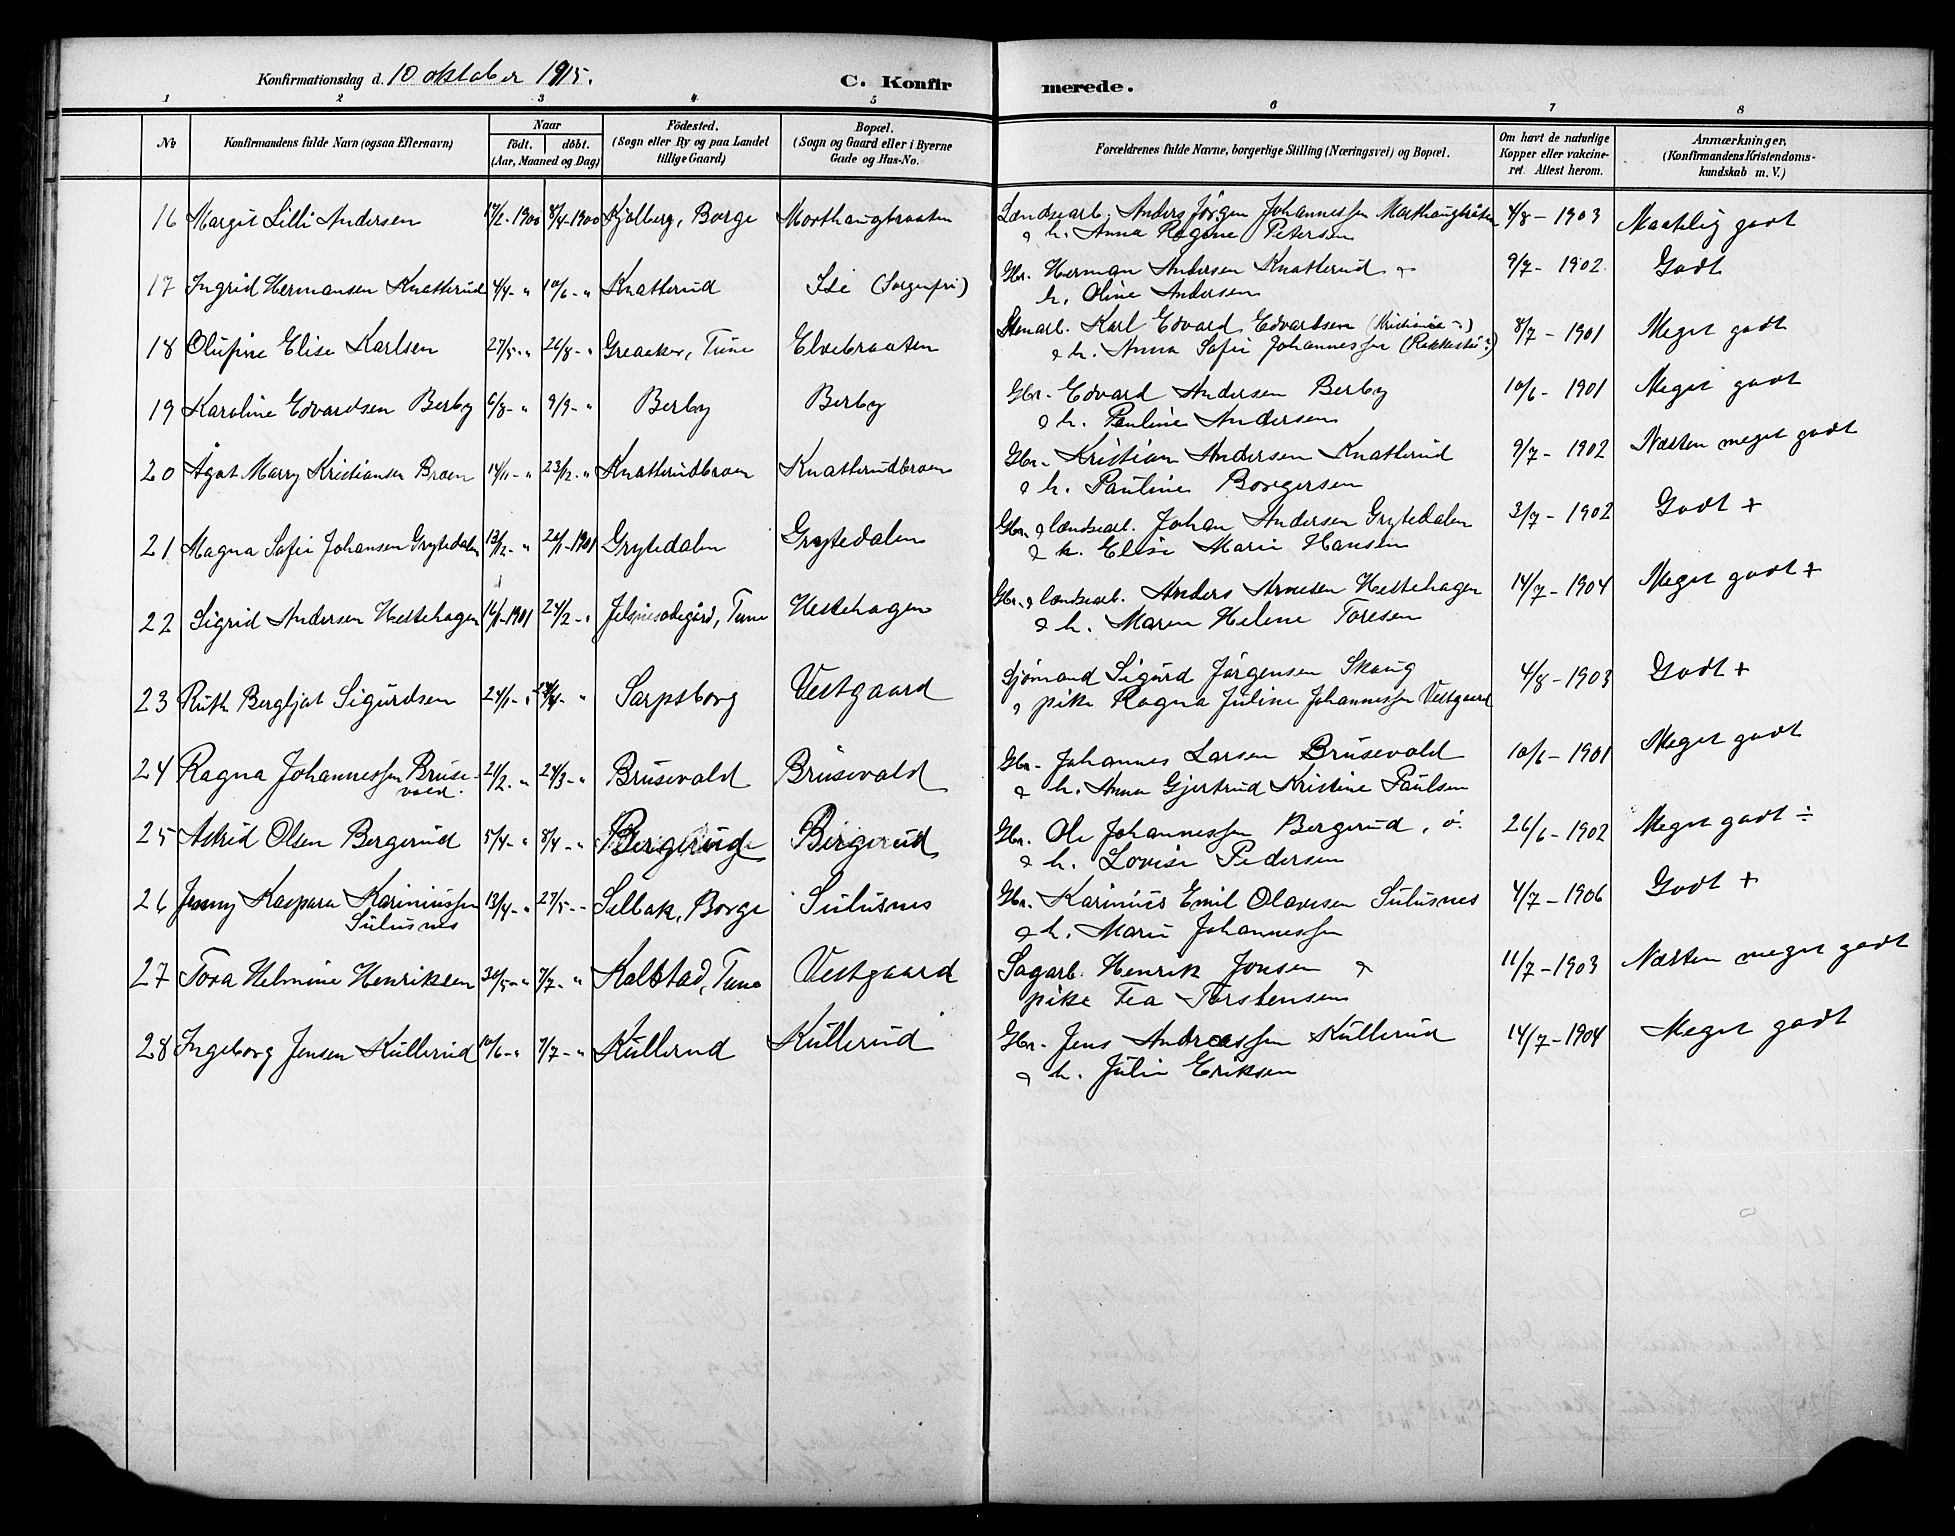 Konfirmationsdag d. 10 oktober 1915. C. Konfirmerede.
1 2 3 4 5 6 7 8
No Konfirmandens fulde Navn (ogsaa Efternavn) Naar Födt. döbt. (Aar, Maaned og Dag) Födested. (Sogn eller By og paa Landet tillige Gaard) Bopæl. (Sogn og Gaard eller i Byerne Gade og Hus-No. Forældrenes fulde Navne, borgerlige Stilling (Næringsvei) og Bopæl. Om havt de naturlige Kopper eller vakcineret. Attest herom. Anmærkninger. (Konfirmandens Kristendomskundskab m. V.)
16 Margit Lilli Andersen 8/4-1900 Kjölberg, Borge Morthaugbraaten Landsearb. Anders Jörgen Johannessen Morthaugbråten 4/8 - 1903 Maatelig godt
& h. Anna Ragine Petersen
17 Ingrid Hermansen Knatterud 4/4- " 10/6- " Knatterud Ide (Sorgenfri) Gbr. Herman Andersen Knatterud & 9/7 - 1902 Godt
h. Oline Andersen
18 Olufine Elise Karlsen 27/5- " 26/8- " Greaaker, Tune Elvebraaten Stenarb. Karl Edvard Edvardsen (Kristiania) 8/7 - 1901 Meget godt
& h. Anna Sofie Johannessen (Rakkestad)
19 Karoline Edvardsen Berby 6/8- " 9/9- " Berby Berby Gbr. Edvard Andersen Berby 10/6 - 1901 Meget godt
& h. Pauline Andersen
20 Ågot Marry Kristiansen Broen 14/11- " 23/12- " Knatterudbroen Knatterudbroen Gbr. Kristian Andersen Knatterud 9/7 - 1902 Næsten meget godt
& h. Pauline Borgersen
21 Magna Sofie Johansen Grytedalen 13/12- " 26/1-1901 Grytedalen Grytedalen Gbr. & landsearb. Johan Andersen Grytedalen 3/7 - 1902 Godt +
& h. Elise Marie Hansen
22 Sigrid Andersen Hestehagen 16/1-1901 24/2- " Tune Hestehagen Gbr. & landsearb. Anders Arnesen Hestehagen 14/7 - 1904 Meget godt +
& h. Maren Helene Toresen
23 Ruth Bergljot Sigurdsen 24/1- " Sarpsborg Vestgaard Sjömand Sigurd Jörgensen Skaug 4/8 - 1903 Godt +
& pike Ragna Juline Johannessen Vestgaard
24 Ragna Johannessen Brusevold 21/2- " 24/3- " Brusevold Brusevold Gbr. Johannes Larsen Brusevold 10/6 - 1901 Meget godt
& h. Anna Gjertrud Kristine Paulsen
25 Astrid Olsen Bergerud 5/4- " 8/4- " Bergerud Bergerud Gbr. Ole Johannessen Bergerud, ö. 26/6 - 1902 Meget godt ÷
& h. Lovise Pedersen
26 Jenny Kaspara Kariniussen Sulusnes 13/4- " 27/5- - Selbak, Borge Sulusnes Gbr. Karinius Emil Olavesen Sulusnes 4/7 - 1906 Godt +
& h. Marie Johannessen
27 Tora Helmine Henriksen 30/5- " 7/7- " Kalstad, Tune Vestgaard Sagarb. Henrik Jonsen & 11/7 - 1903 Næsten meget godt
pike Tea Torstensen
28 Ingeborg Jensen Kullerud 10/6- " 7/7- " Kullerud Kullerud Gbr. Jens Andreassen Kullerud 14/7 - 1904 Meget godt
& h. Julie Eriksen